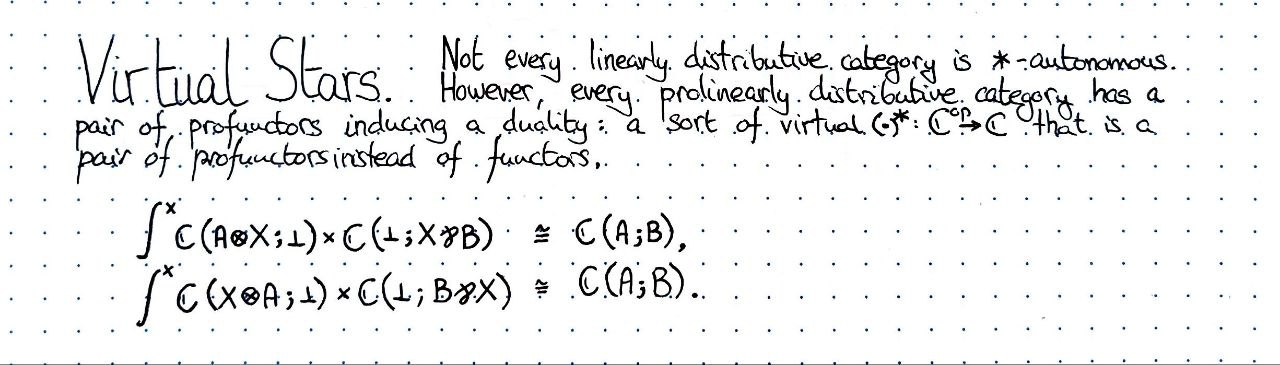 Virtual Stars. Not every linearly distributive category is *-autonomous.
However, every prolinearly distributive category has a
pair of profunctors inducing a duality: a sort of virtual (•)*: ℂᵒᵖ→ℂ that is a
pair of profunctors instead of functors.
∫ˣ ℂ(A⊗X;⊥)×ℂ(⊥;X⅋B) ≅ ℂ(A;B),
∫ˣ ℂ(X⊗A;⊥)×ℂ(⊥;B⅋X) ≅ ℂ(A;B).